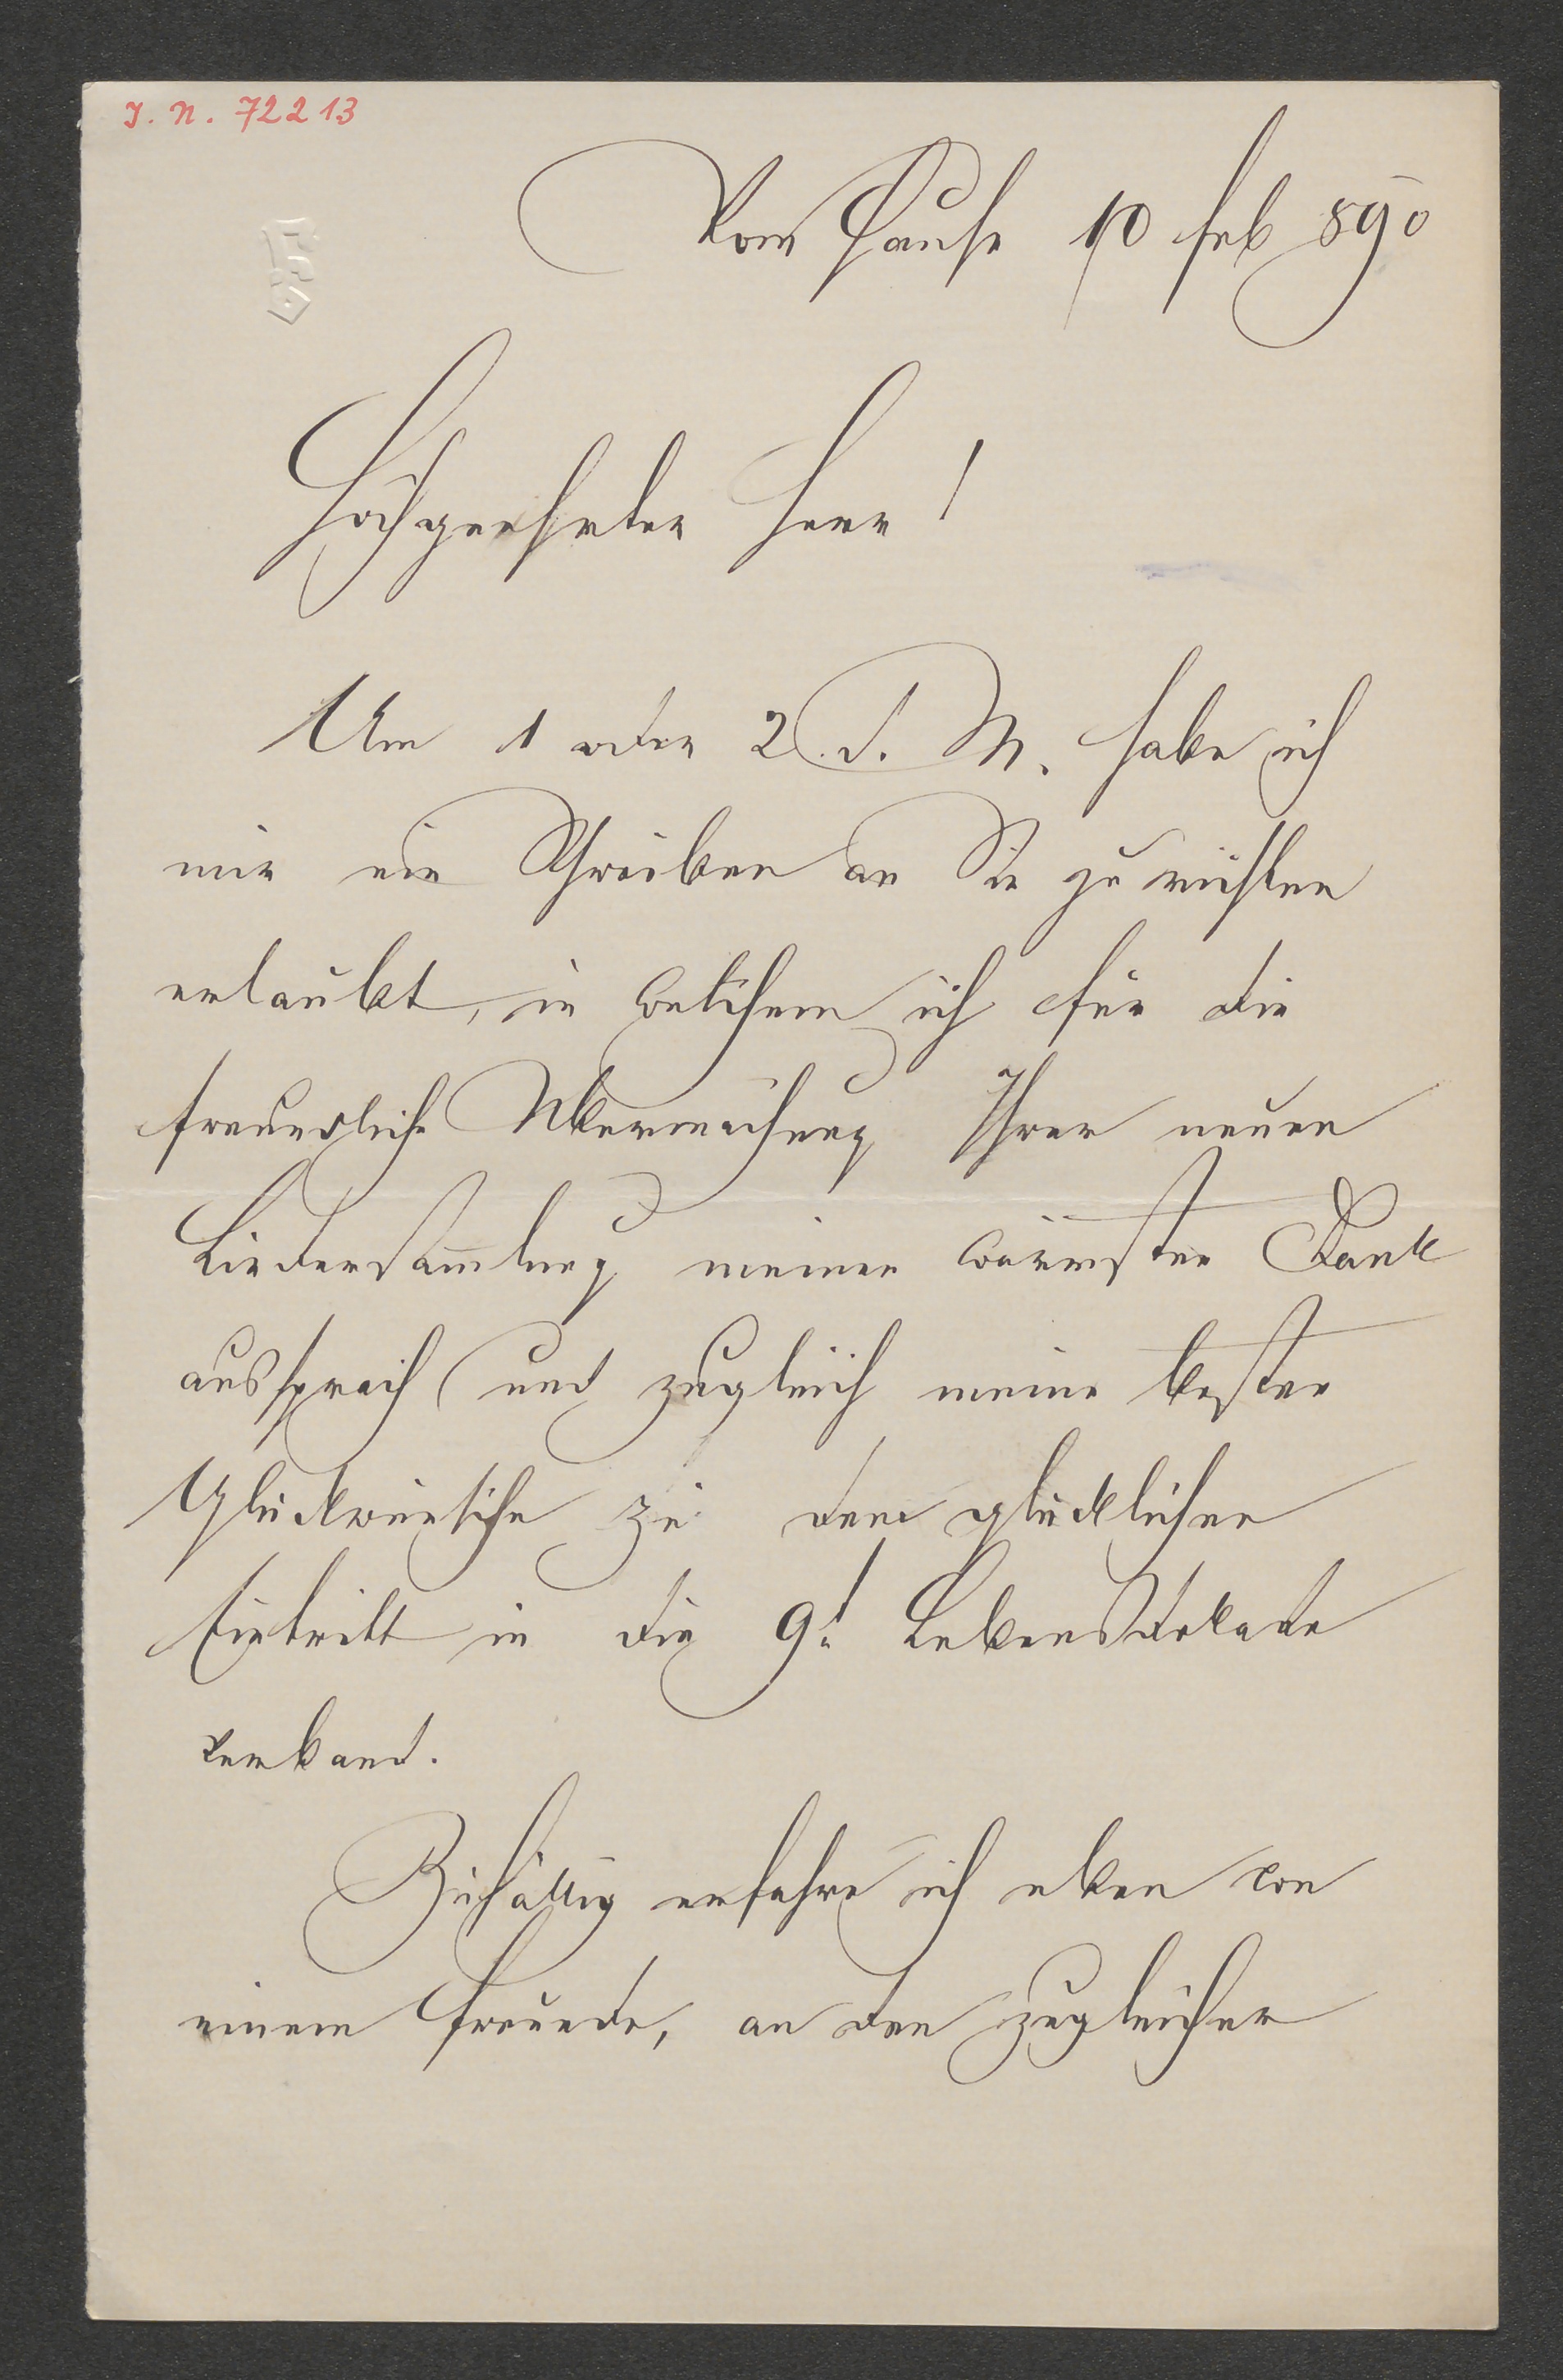 I. N. 72213
Vom Hause 10 Feb 890
Hochgeehrter Herr!
Am 1 oder 2. d. M. habe ich
mir ein Schreiben an Sie zu richten
erlaubt, in welchem ich für die
freundliche Übermachung Ihrer neuen
Liedersam̄lung meinen wärmsten Dank
aussprach und zugleich meine besten
Glückwünsche zu dem glücklichen
Eintritt in die 9t. Lebensdekade
verband.
Zufällig erfahre ich eben von
einem Freunde, an den zugleicher